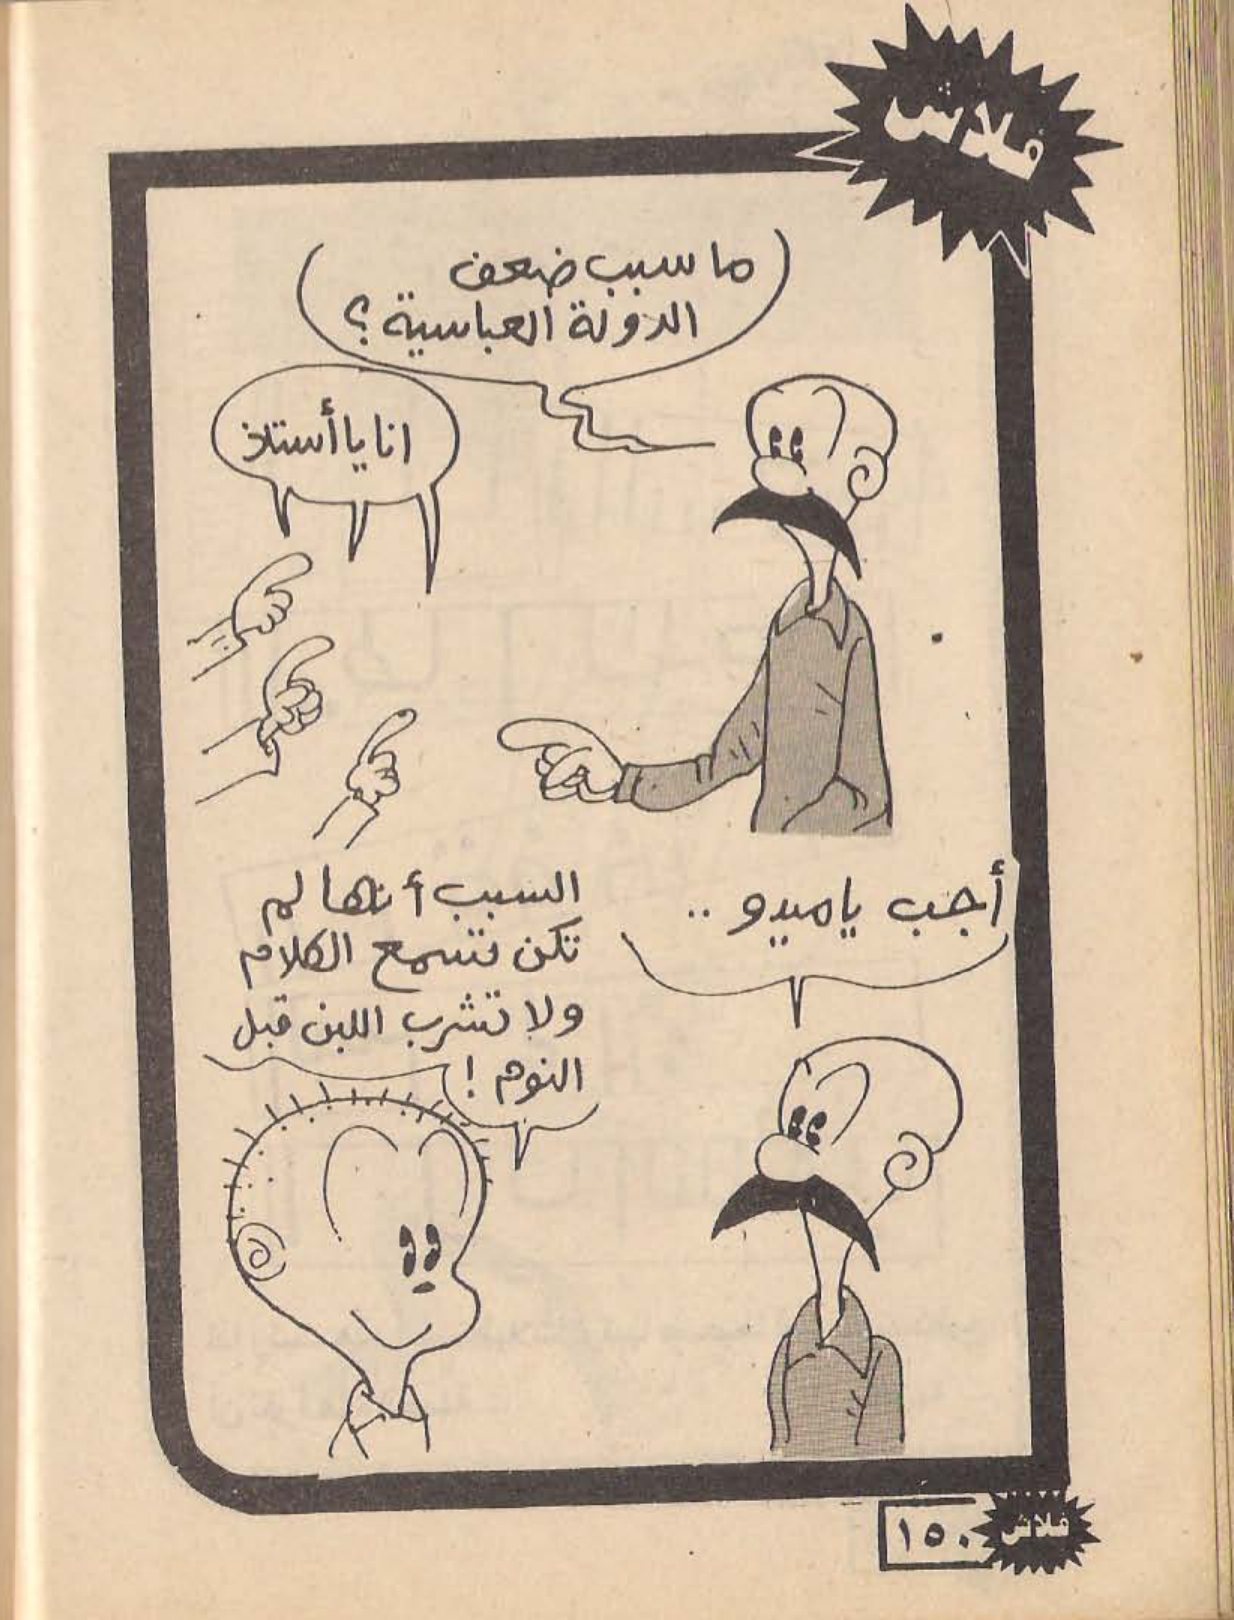 فلاش
ما سبب ضعف
الدولة العباسية ؟
انا يا أستاذ
أجب يا ميدو ..
السبب أنها لم
تكن تسمع الكلام
ولا تشرب اللبن قبل
النوم !
١٥٠
فلاش